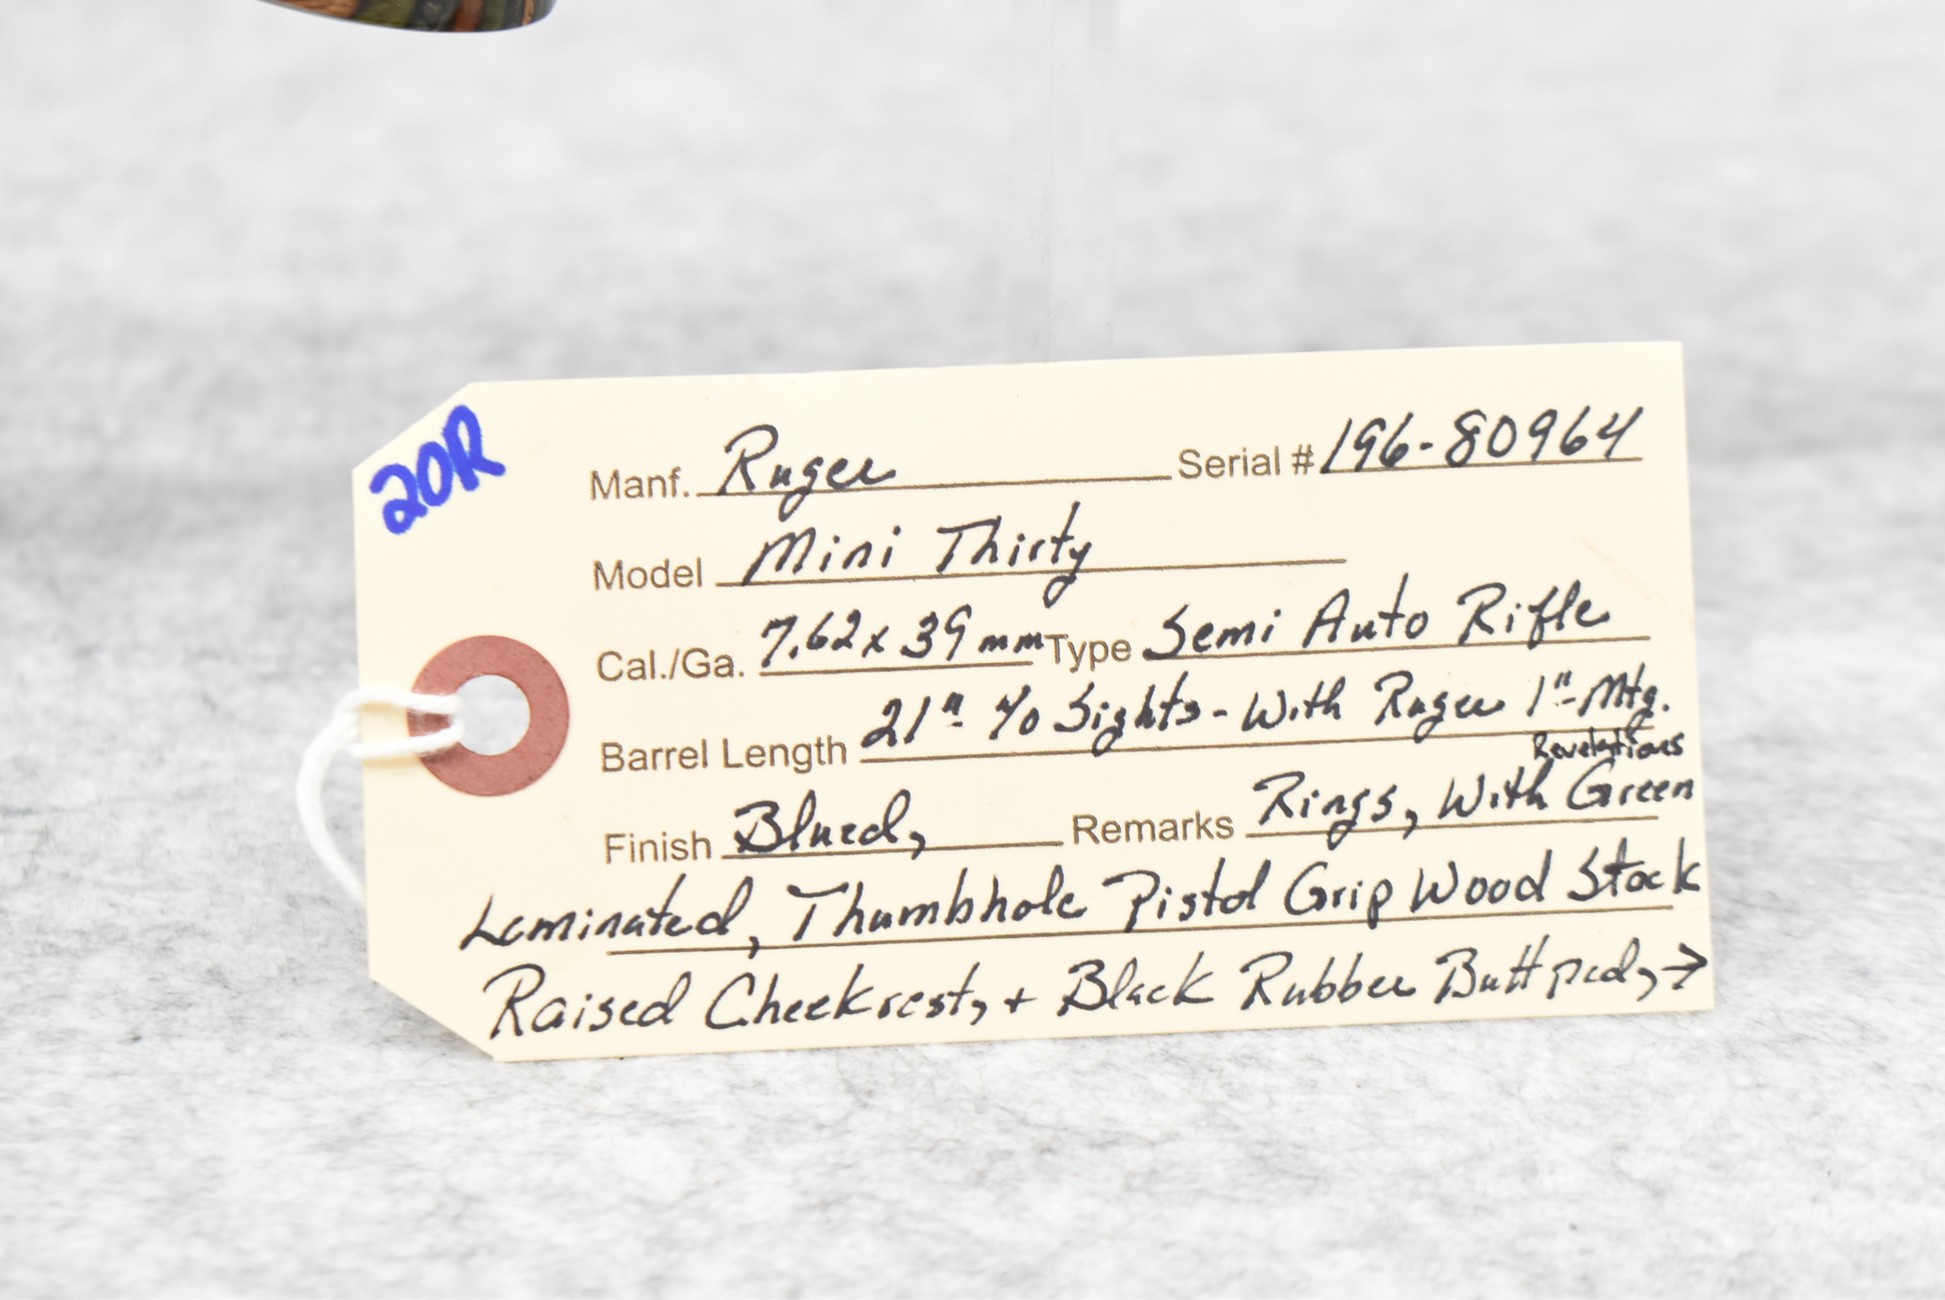 20R
Manf. Ruger Serial # 196-80964
Model Mini Thirty
Cal./Ga. 7.62x39mm Type Semi Auto Rifle
Barrel Length 21" w/o Sights - With Ruger 1"-Mtg.
Revelations
Finish Blued, Remarks Rings, With Green
Laminated, Thumbhole Pistol Grip Wood Stock
Raised Cheekrest, + Black Rubber Buttpad, →